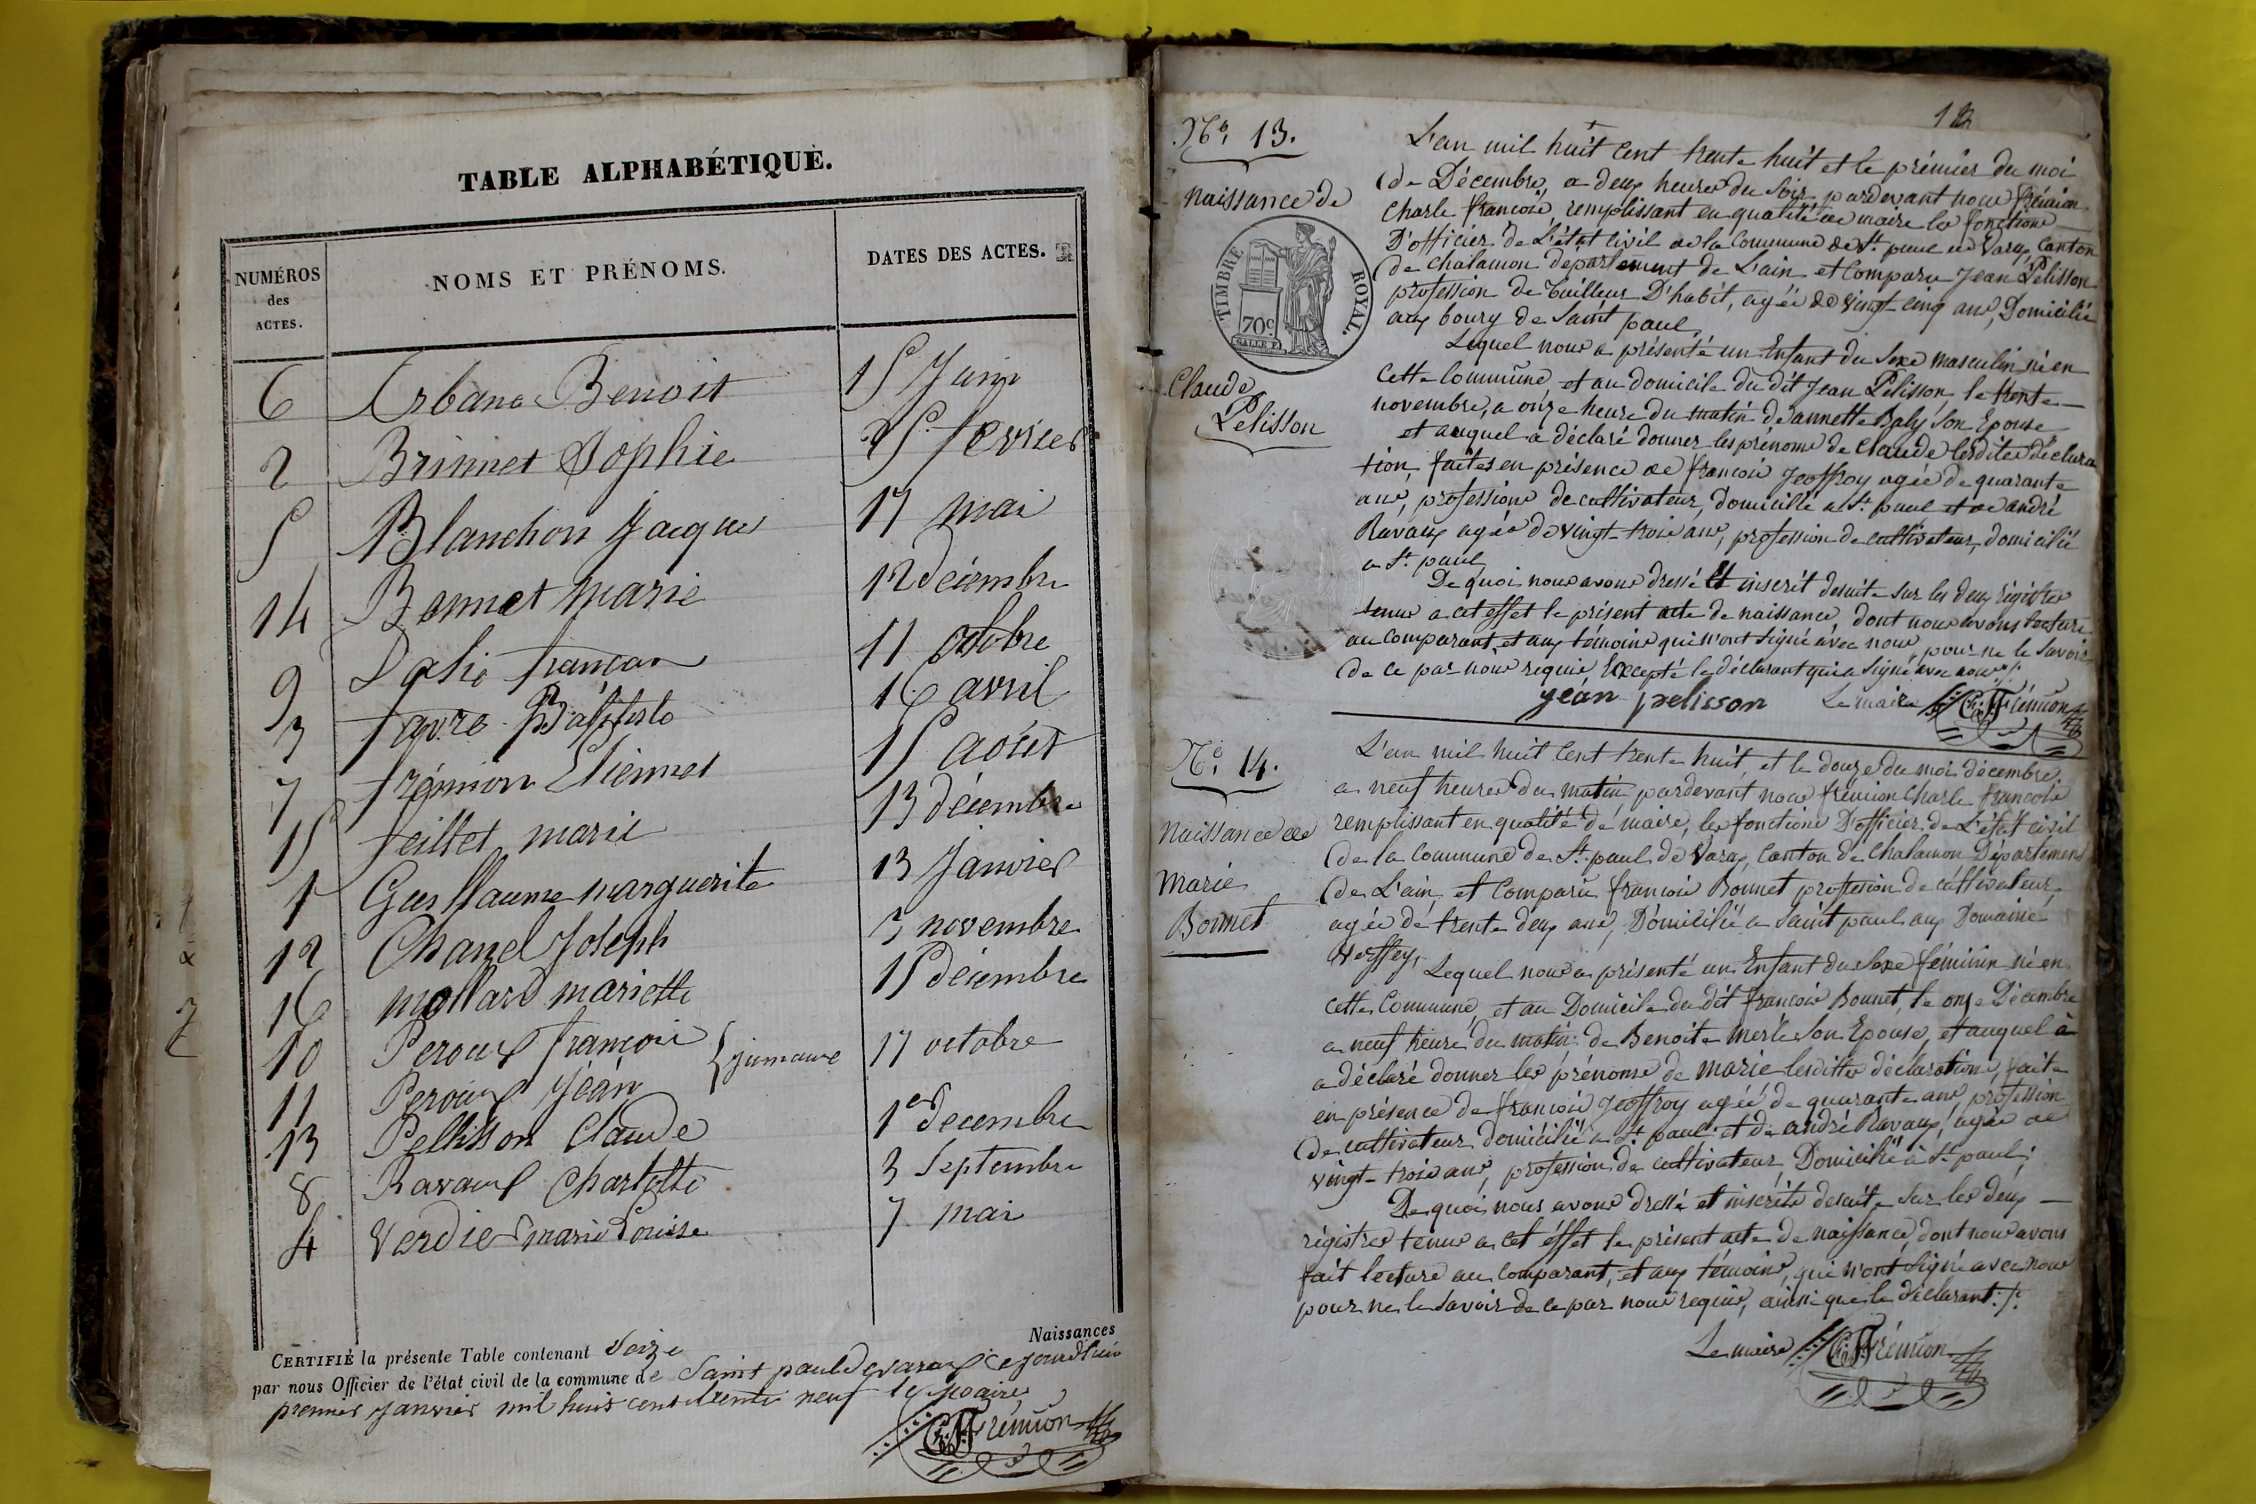 TABLE ALPHABÉTIQUE.
NUMÉROS des ACTES. NOMS ET PRÉNOMS. DATES DES ACTES.
6 Arbane Benoit 15 Juin
2 Brinnet Sophie 25 fevrier
5 Blanchon Jacques 17 mai
14 Bonnet marie 12 décembre
9 françois 11 octobre
3 favre Bábtiste 16 avril
7 frémion Etiennet 15 août
15 feillet marie 13 décembre
1 Guillaume marguerite 13 Janvier
12 Chanel Joseph 3 novembre
16 mollard mariette 15 décembre
10 Peroux françois
11 Peroux Jéan { jumeaux 17 octobre
13 Pellisson Claude 1er decembre
8 Ravaux Charlotte 3 Septembre
4 Verdier marie Louise 7 mai
CERTIFIÉ la présente Table contenant Seize Naissances
par nous Officier de l'état civil de la commune de Saint paul de varax ce jourd'huis
premier janvier mil huit cent trente neuf le maire
Ch. F. Frémion
12
No. 13.
naissance de
TIMBRE ROYAL.
70c
Claude
Pélisson
L'an mil huit cent trente huit et le prémier du moi
de Décembre, a deux heures du soir pardevant nous frémion
Charle françois, remplissant en qualité de maire les fonctions
D'officier de L'état civil de la Commune de St paul de Varax, Canton
de chalamon département de L'ain et Comparu Jean Pélisson
profession de tailleur D'habit, agée de vingt cinq ans, Domicilié
aux bourg de Saint paul,
Lequel nous a présenté un Enfant du Sexe masculin né en
cette Commune, et au domicile du dit Jean Pélisson le trente
novembre, a onze heure du matin de annette Baly Son Epouse
et auquel a déclaré donner les prénoms de Claude lesdites déclara
tion, faites en présence de françois Jeoffroy agée de quarante
ans, professions de cultivateur, domicilié a St paul et de andré
Ravaux agée de vingt-trois ans, profession de cultivateur, domicilié
a St. paul
De quoi nous avons dressé Et inscrit desuite Sur les deux régistres
tenus a cet effet le présent acte de naissance, dont nous avons lecture
au comparant, et aux témoins qui n'ont signé avec nous, pour ne le Savoir
de ce par nous requis Excepté le déclarant qui a Signé avec nous
jéan pelisson Le maire Ch. F. Frémion
No. 14.
naissance de
Marie
Bonnet
L'an mil huit cent trente huit, et le douze du moi décembre,
a neuf heures du matin pardevant nous frémion Charle françois
remplissant en qualité de maire, les fonctions D'officier de L'état civil
de la Commune de St. paul de Varax, Canton de Chalamon Département
de L'ain, et Comparu françois Bonnet profession de cultivateur,
agée de trente deux ans, Domicilié a Saint paul aux Domaine
Lequel nous a présenté un Enfant du Sexe féminin né en
cette Commune, et au Domicile du dit françois Bonnet, le onze Décembre
a neuf heure du matin de Benoite Merle Son Epouse, et auquel à
a déclaré donner les prénoms de marie lesdittes déclarations, faite
en présence de françois Jeoffroy agée de quarante ans, profession
de cultivateur domicilié a St paul et de andré Ravaux, agée de
vingt-trois ans, profession de cultivateur, Domicilié à St paul;
De quoi nous avons dressé et inscrite desuite Sur les deux
régistres tenus a cet éffet le présent acte de naissance, dont nous avons
fait lecture au comparant, et aux témoins, qui n'ont Signé avec nous
pour ne le Savoir de ce par nous requis, ainsi que le déclarant.
Le maire Ch. F. Frémion